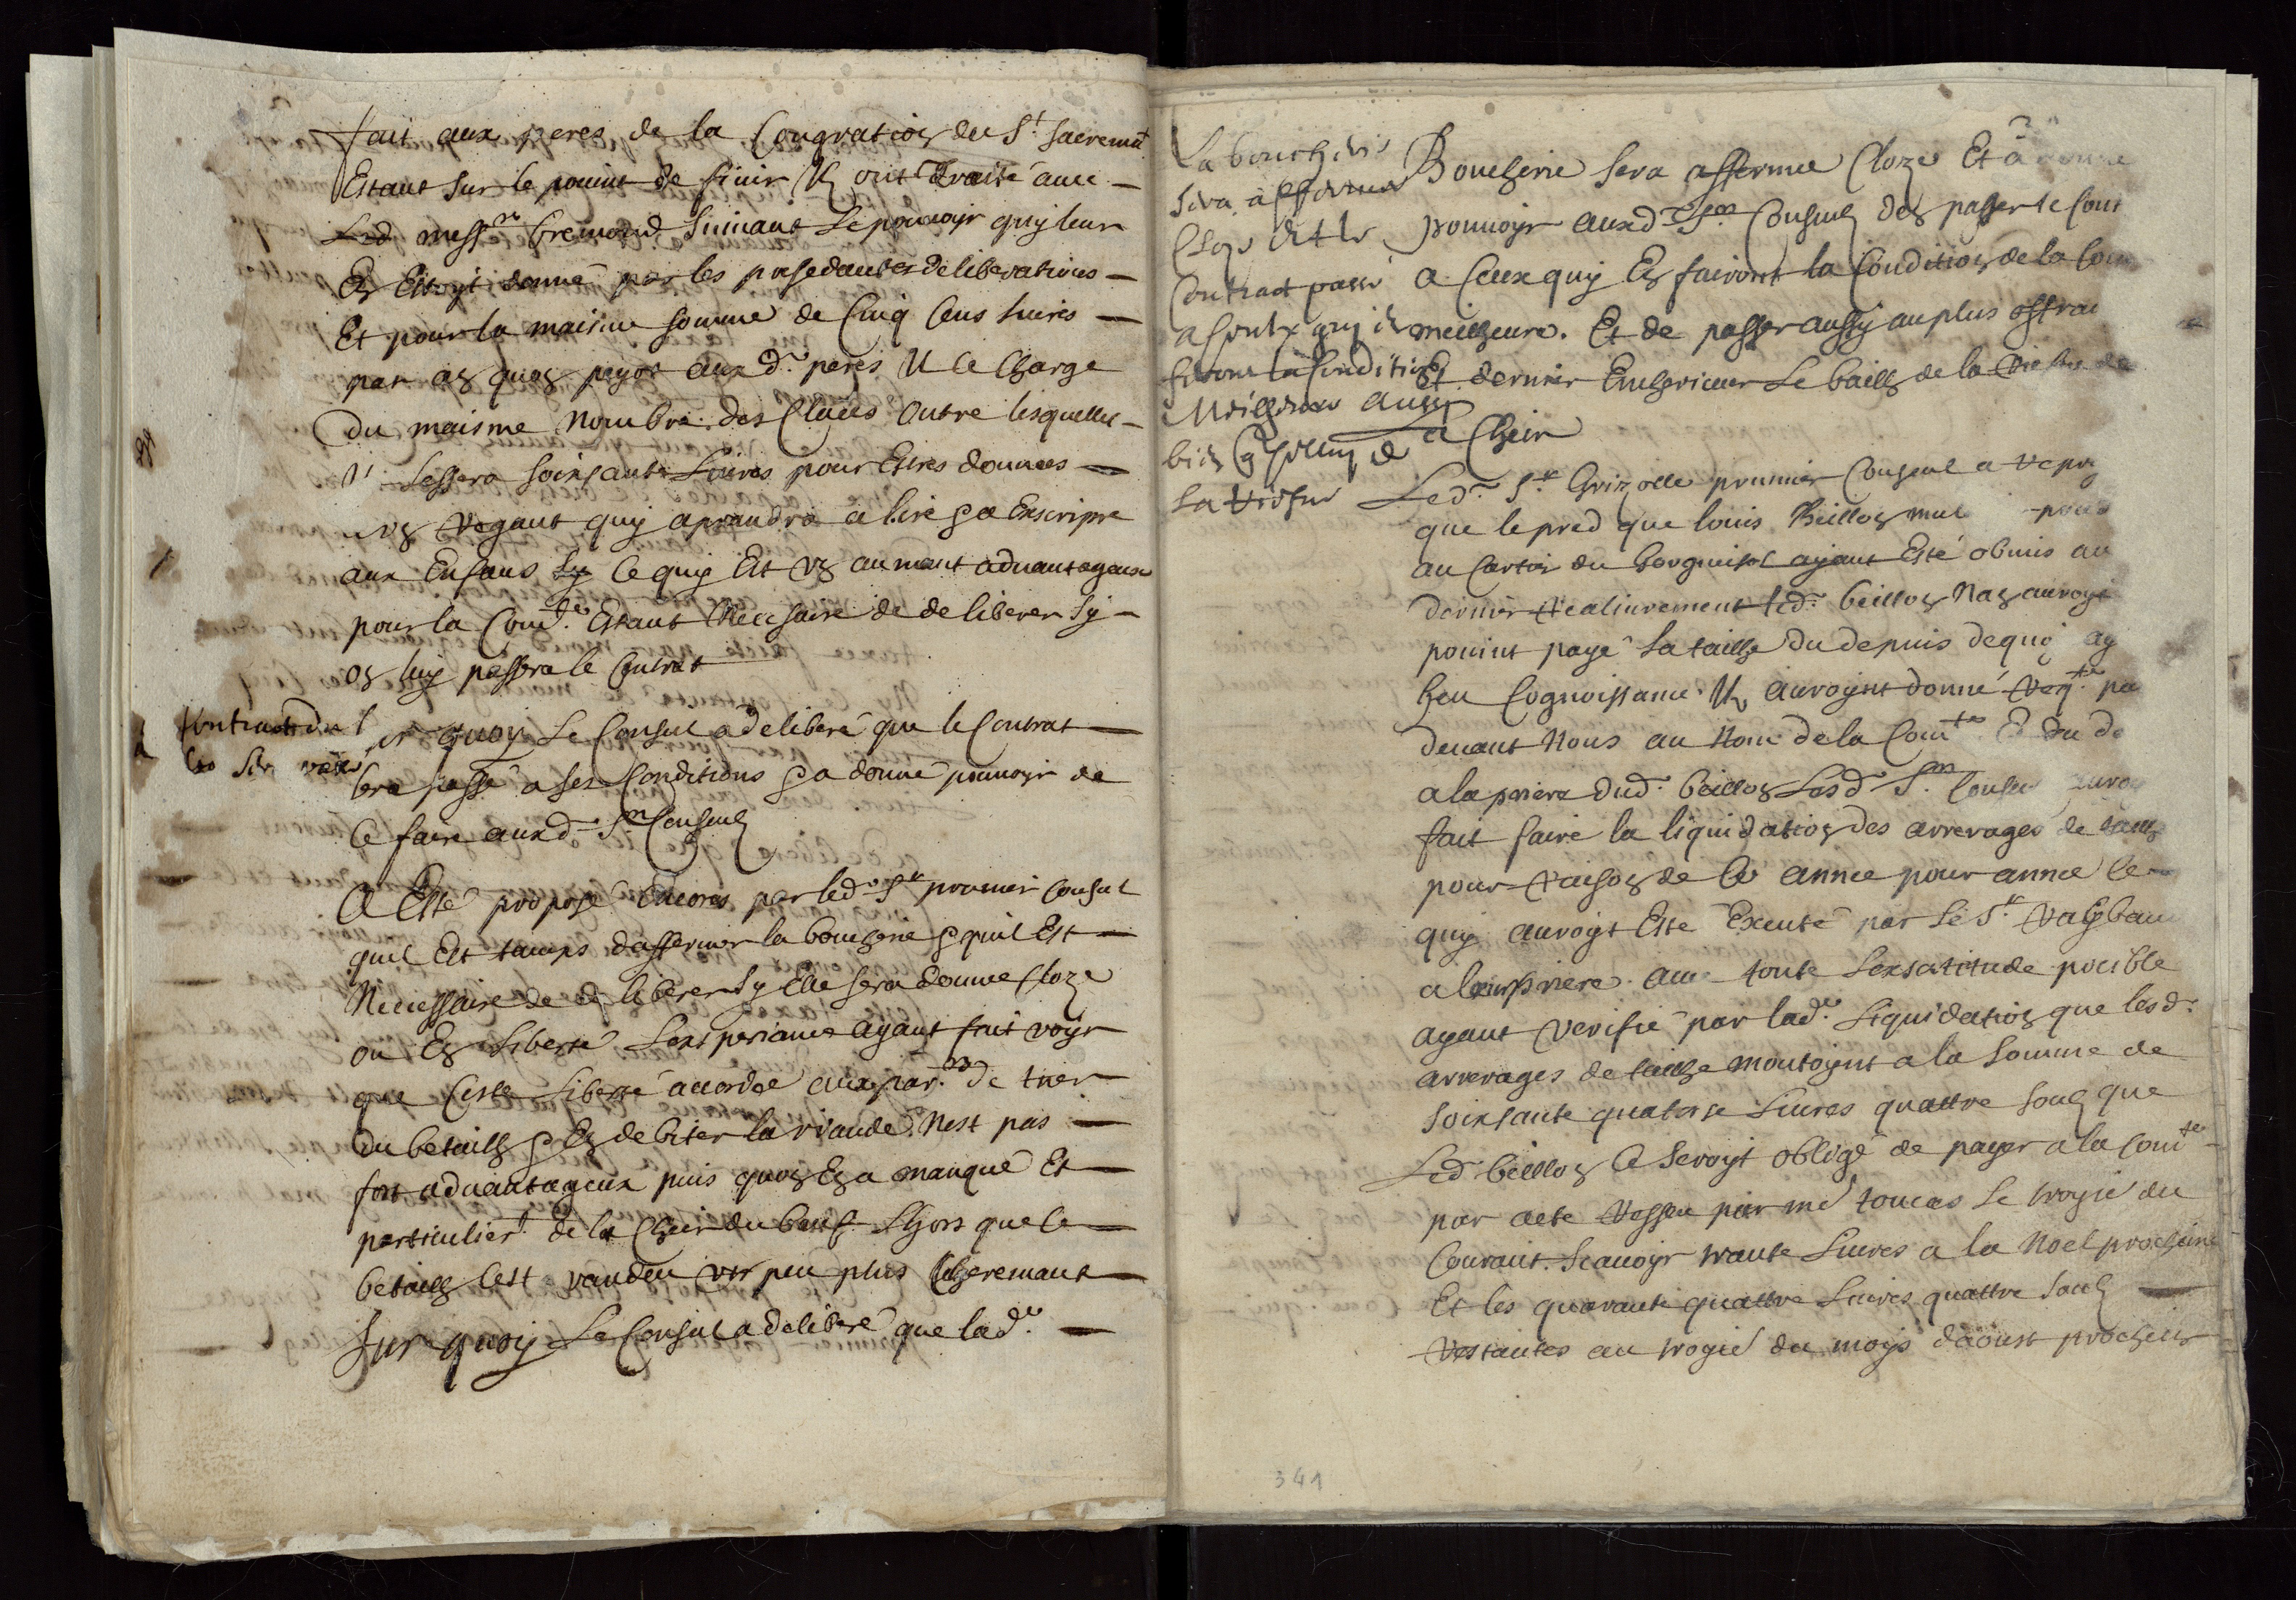 fait aux peres de la Congration du St. sacremt
Estant sur le pouint de finir Ils ont Traité avec
Led messre Cremond suivant Le pouvoyr quy leur
En Estoyt donné par les presedantes deliberations
Et pour la maisme somme de Cinq Cens livres
par an quon payot aux d. peres Il ce Charge
Du maisme Nombre des Classes outre lesquelles
Il Lessera soixsante Livres pour Estres donnees
un Regant quy aprandra a lire & a Enscripre
aux Enfans Ce quy Est un aumant advantageux
pour la Comd.te Estant Necesaire de deliberer sy
on luy passera le Contrat
Contract
Sur quoy Le Conseul a deliberé que le Contrat
sera passé a ses Conditions & a donné pouvoyr de
Ce faire aux d. Srs Consculz
A Esté proposé Encores par led. Sr. premier Consul
quil Est tamps daffermer la boucherie & quil Est
Necessaire de deliberer sy Elle sera donnee Cloze
ou En Liberté Lexsperiance ayant fait voyr
que Ceste Liberté accordee aux par.rs de tuer
du betailh & En debiter la viande Nest pas
fort advantageux puis quon En a manqué Et
particulier.t de la Cher du beuf Lhors que le
betailh sest vandeu un peu plus Cheremant
Sur quoy Le Conseul a deliberé que lad.e
La boucherie
sera affermee
Close Et le
Contract passé
a ceulx qui en
feront la Condition
Meilheure aussy
bien que celluy de
La vistre
Boucherie sera affermee Cloze Et a donné
pouvoyr auxd. Srs Consculz den passer le Cont
a Ceux quy En fairont la Condition de la Com
meilheure. Et de passer aussy au plus offran
Et dernier Encherisseur Le bailh de la de
a Cheir
Led. Sr. Grizolle prumier Conseul a
que le pred que louis Beillon
au Cartier du ayant Esté obmis au
dernier Realiurement led. beillon Nan auroyt
pouint payé La tailhe Du depuis dequoy ay
heu Cognoissance Ils auroyent donné Req.te pa
devant Nous au Nom de la Com.te
a la priere dud. beillon Lesd. Srs Consulz
fait faire la liquidation des arrerages de tailh
pour Raison de Ce annee pour annee Ce
quy auroyt Esté Exeuté par le Sr.
a leur priere avec toute Lexsatitude posible
ayant Verifié par lad.e Liquidation que lesd.
arrerages de tailhe montoynt a la Somme de
soixsante quatorse Livres quattre soulz que
Led beillon Ce seroyt obligé de payer a la Com.te
par acte Ressu par me toucas le troysie du
Courant. Scavoyr trante Livres a la Noel procheine
Et les quarante quattre Livres quattre soulz
Restantes au troysie du moys daoust prochein
341